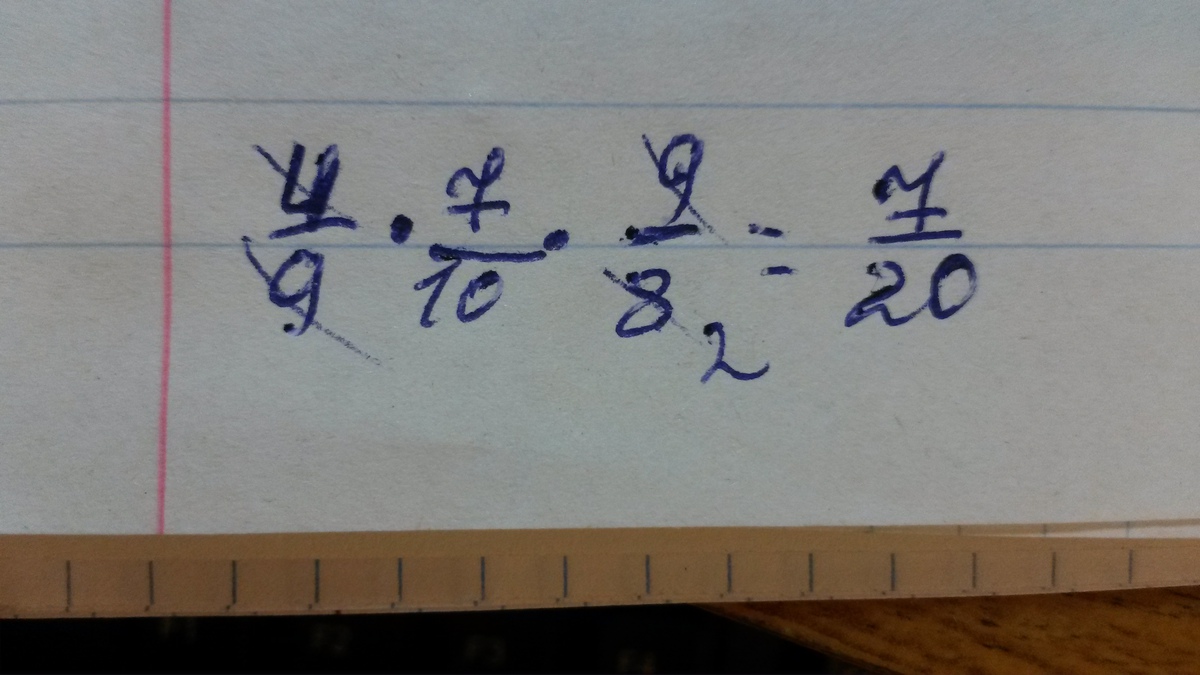 4/9 · 7/10 · 9/8 = 7/20
2